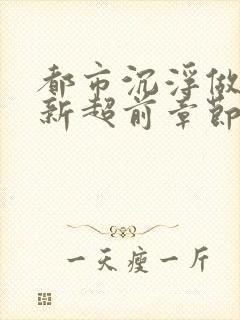 都市沉浮做
新超前章节
一天瘦一斤